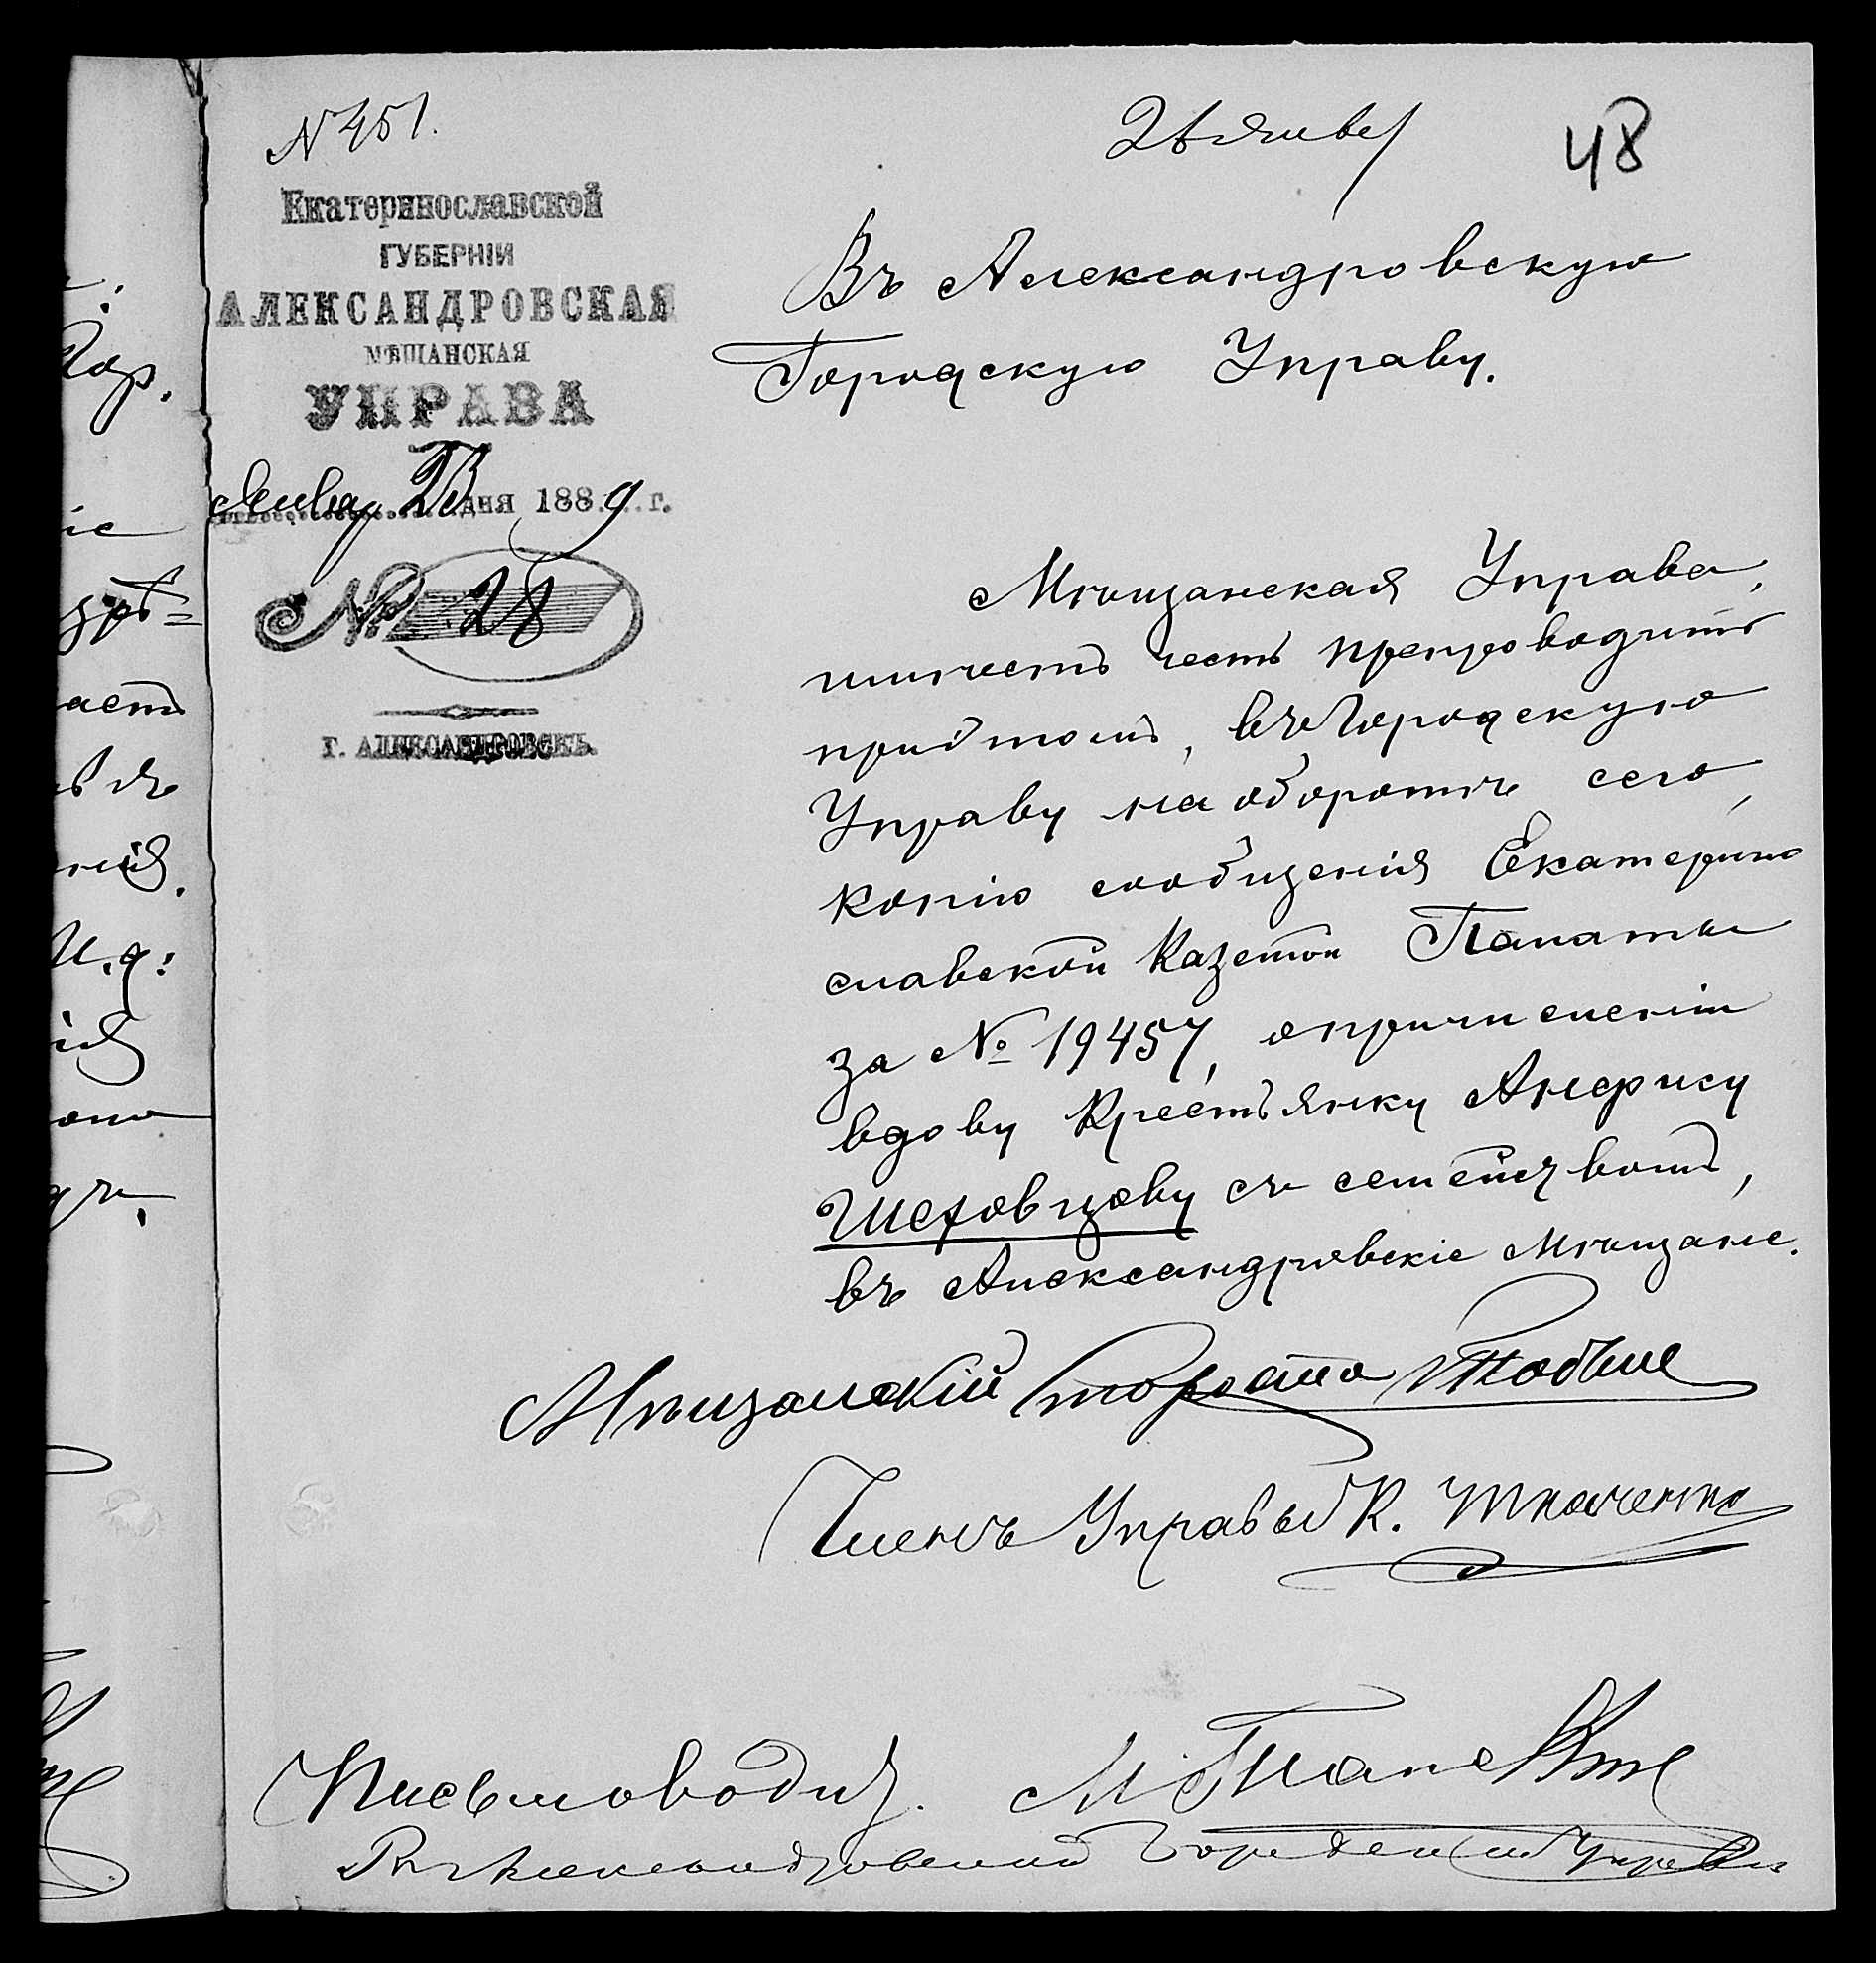 № 451.
48
Екатеринославской
ГУБЕРНІИ
АЛЕКСАНДРОВСКАЯ
МѢЩАНСКАЯ
УПРАВА
Январ 23 дня 1889 г.
№ 28
г. АЛЕКСАНДРОВСКЪ.
Въ Александровскую
Городскую Управу.
Мѣщанская Управа,
имѣетъ честь препроводить
при этомъ, въ Городскую
Управу на оборотѣ сего,
копію сообщенія Екатерино
славской Казеной Палаты
за № 19457, о причисленіи
вдову Крестьянку Анфису
Шеховцову съ семействомъ,
въ Александровскіе Мѣщане.
Мѣщанскій Староста
Членъ Управы К. Ткаченко
Письмоводит.
Городской Управы